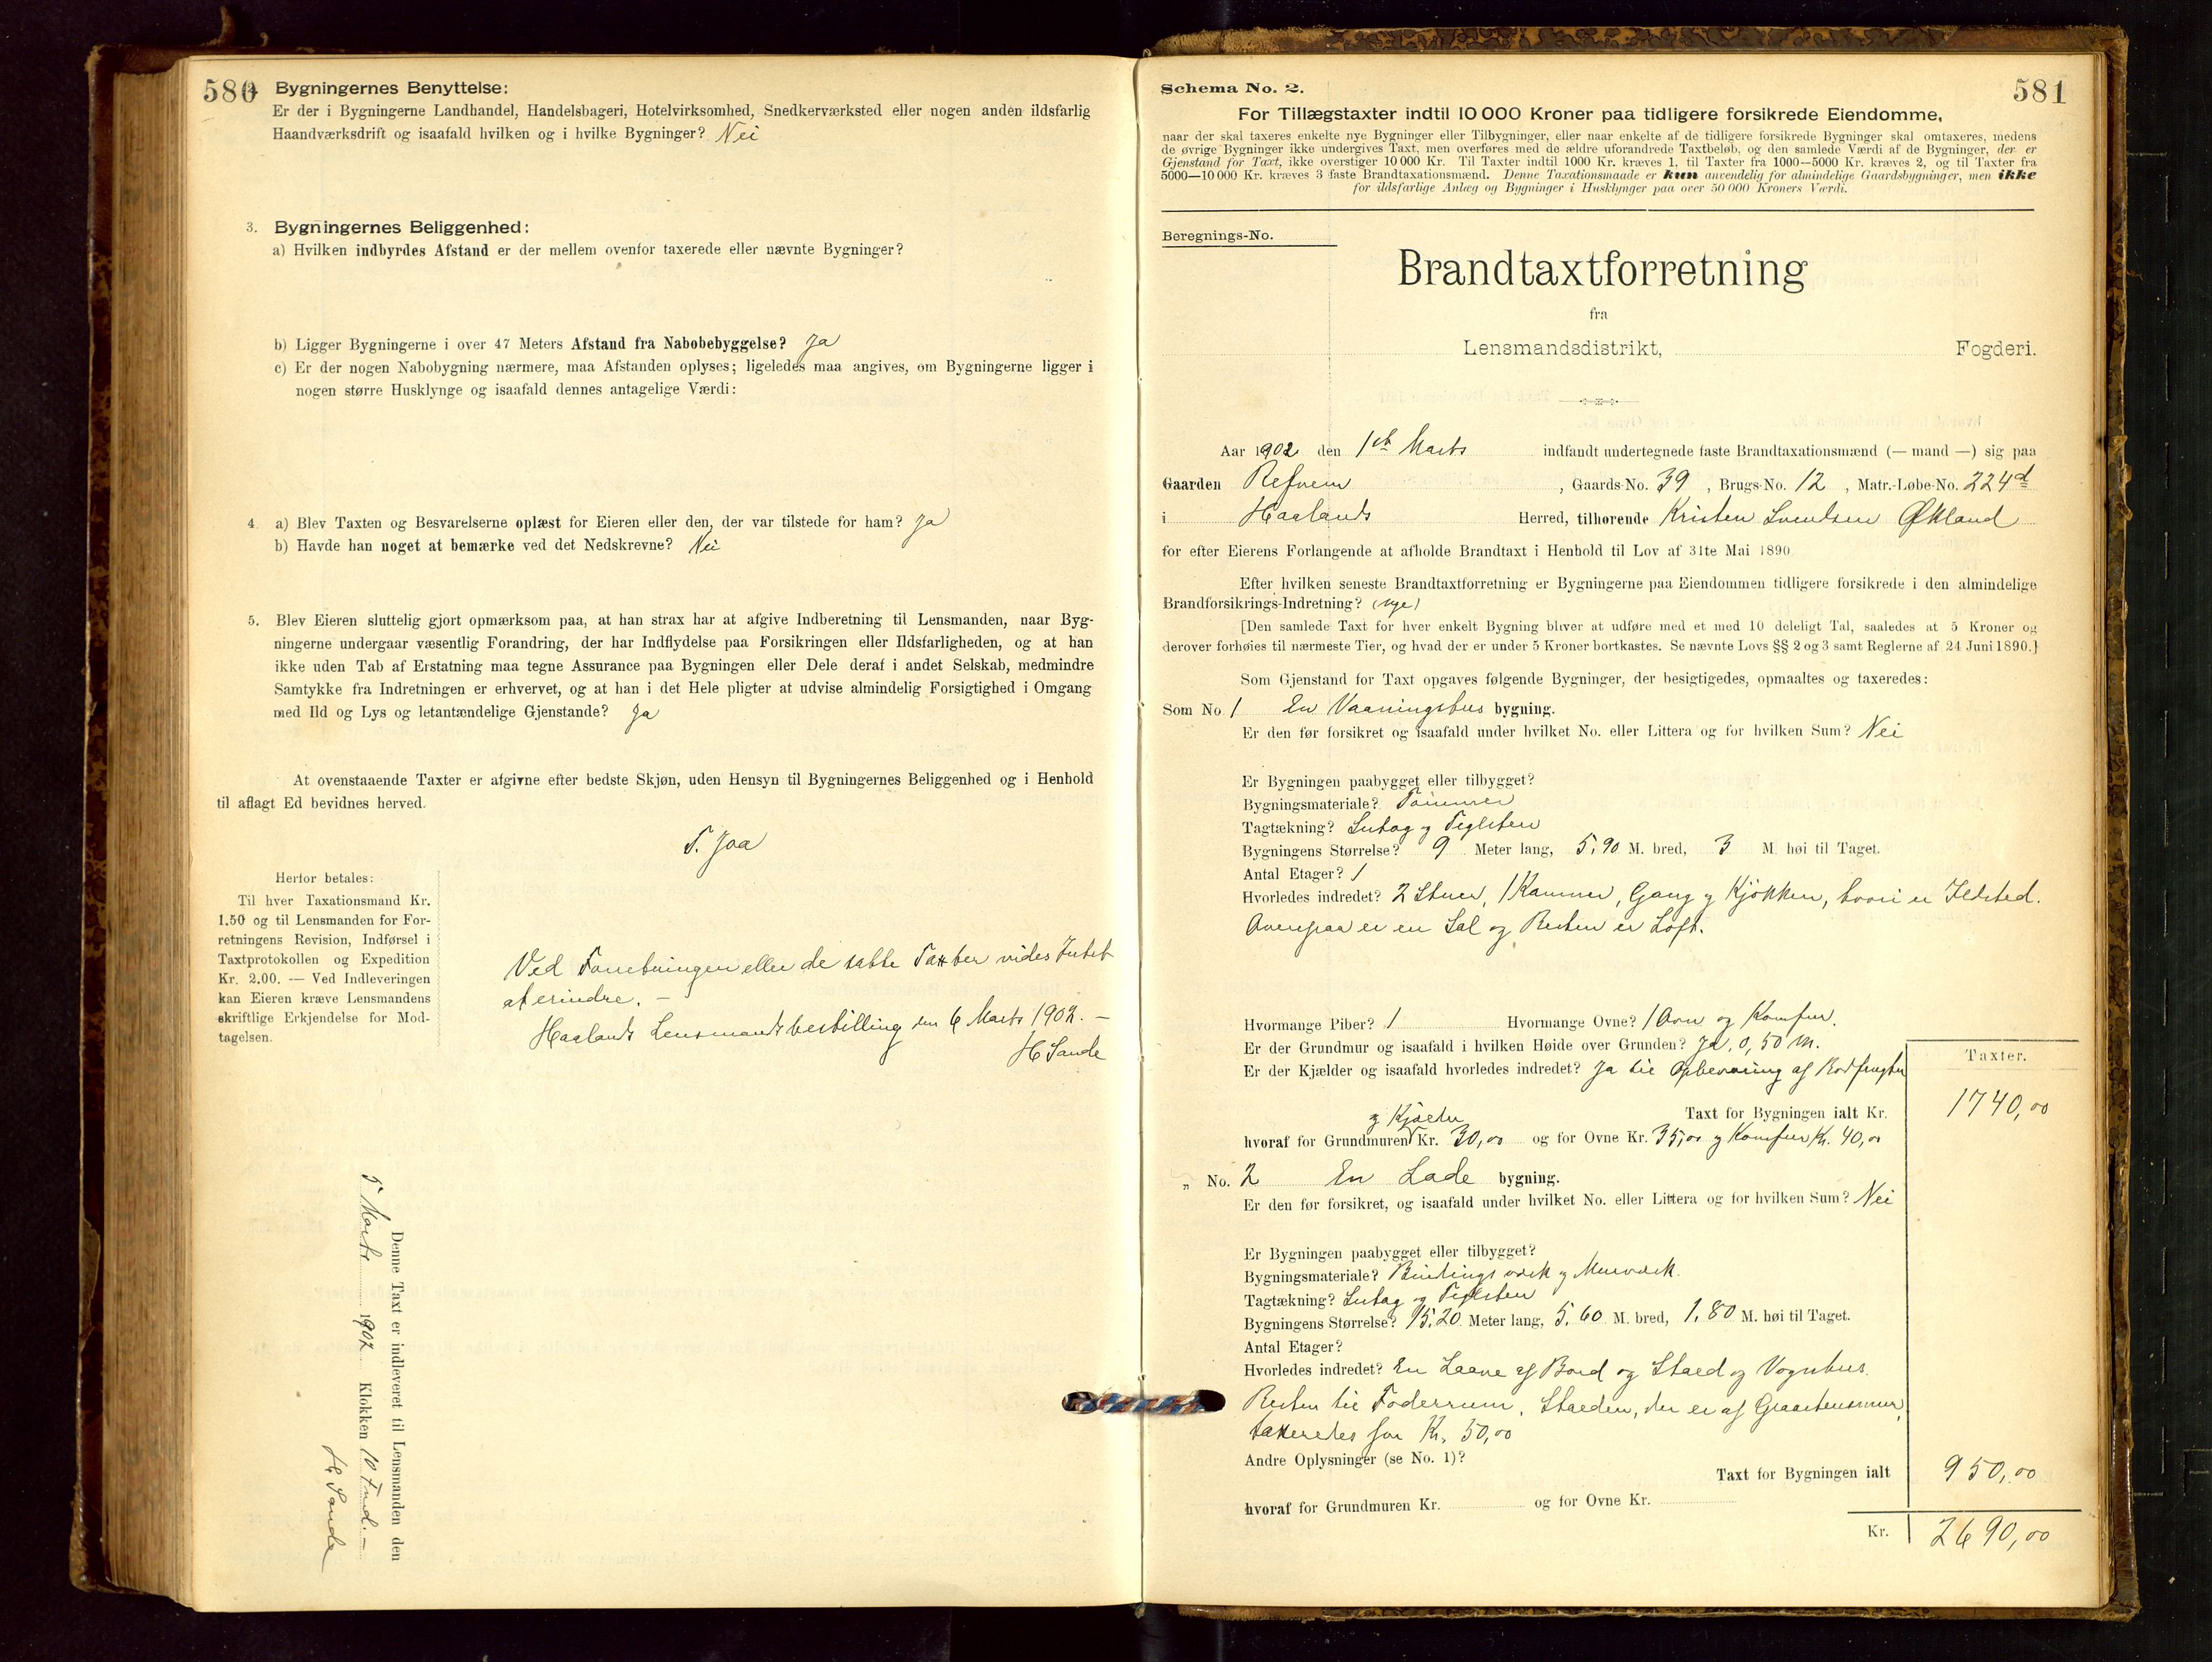 580
Bygningernes Benyttelse:
Er der i Bygningerne Landhandel, Handelsbageri, Hotelvirksomhed, Snedkerværksted eller nogen anden ildsfarlig
Haandværksdrift og isaafald hvilken og i hvilke Bygninger? Nei
3. Bygningernes Beliggenhed:
a) Hvilken indbyrdes Afstand er der mellem ovenfor taxerede eller nævnte Bygninger?
b) Ligger Bygningerne i over 47 Meters Afstand fra Nabobebyggelse? Ja
c) Er der nogen Nabobygning nærmere, maa Afstanden oplyses; ligeledes maa angives, om Bygningerne ligger i
nogen større Husklynge og isaafald dennes antagelige Værdi:
4. a) Blev Taxten og Besvarelserne oplæst for Eieren eller den, der var tilstede for ham? Ja
b) Havde han noget at bemærke ved det Nedskrevne? Nei
5. Blev Eieren sluttelig gjort opmærksom paa, at han strax har at afgive Indberetning til Lensmanden, naar Byg-
ningerne undergaar væsentlig Forandring, der har Indflydelse paa Forsikringen eller Ildsfarligheden, og at han
ikke uden Tab af Erstatning maa tegne Assurance paa Bygningen eller Dele deraf i andet Selskab, medmindre
Samtykke fra Indretningen er erhvervet, og at han i det Hele pligter at udvise almindelig Forsigtighed i Omgang
med Ild og Lys og letantændelige Gjenstande? Ja
At ovenstaaende Taxter er afgivne efter bedste Skjøn, uden Hensyn til Bygningernes Beliggenhed og i Henhold
til aflagt Ed bevidnes herved.
T. Joa
Herfor betales:
Til hver Taxationsmand Kr.
1.50 og til Lensmanden for For-
retningens Revision, Indførsel i
Taxtprotokollen og Expedition
Kr. 2.00. — Ved Indleveringen
kan Eieren kræve Lensmandens
skriftlige Erkjendelse for Mod-
tagelsen.
Ved Forretningen eller de satte Taxter vides Intet
at erindre. —
Haalands Lensmandsbestilling den 6 Marts 1902. —
H Sande
Denne Taxt er indleveret til Lensmanden den
5 Marts 1902 Klokken 10 Fmd. —
H Sande
581
Schema No. 2.
For Tillægstaxter indtil 10 000 Kroner paa tidligere forsikrede Eiendomme,
naar der skal taxeres enkelte nye Bygninger eller Tilbygninger, eller naar enkelte af de tidligere forsikrede Bygninger skal omtaxeres, medens
de øvrige Bygninger ikke undergives Taxt, men overføres med de ældre uforandrede Taxtbeløb, og den samlede Værdi af de Bygninger, der er
Gjenstand for Taxt, ikke overstiger 10 000 Kr. Til Taxter indtil 1000 Kr. kræves 1, til Taxter fra 1000—5000 Kr. kræves 2, og til Taxter fra
5000—10 000 Kr. kræves 3 faste Brandtaxationsmænd. Denne Taxationsmaade er kun anvendelig for almindelige Gaardsbygninger, men ikke
for ildsfarlige Anlæg og Bygninger i Husklynger paa over 50 000 Kroners Værdi.
Beregnings-No.
Brandtaxtforretning
fra
Lensmandsdistrikt, Fogderi.
Aar 1902 den 1st Marts indfandt undertegnede faste Brandtaxationsmænd (— mand —) sig paa
Gaarden Refnem, Gaards-No. 39, Brugs-No. 12, Matr.-Løbe-No. 224d
i Haalands Herred, tilhørende Kristen Svendsen Økland
for efter Eierens Forlangende at afholde Brandtaxt i Henhold til Lov af 31te Mai 1890.
Efter hvilken seneste Brandtaxtforretning er Bygningerne paa Eiendommen tidligere forsikrede i den almindelige
Brandforsikrings-Indretning? (nye)
[Den samlede Taxt for hver enkelt Bygning bliver at udføre med et med 10 deleligt Tal, saaledes at 5 Kroner og
derover forhøies til nærmeste Tier, og hvad der er under 5 Kroner bortkastes. Se nævnte Lovs §§ 2 og 3 samt Reglerne af 24 Juni 1890.]
Som Gjenstand for Taxt opgaves følgende Bygninger, der besigtigedes, opmaaltes og taxeredes:
Som No. 1 En Vaaningshus bygning.
Er den før forsikret og isaafald under hvilket No. eller Littera og for hvilken Sum? Nei
Er Bygningen paabygget eller tilbygget?
Bygningsmateriale? Tømmer
Tagtækning? Sutag og Teglsten
Bygningens Størrelse? 9 Meter lang, 5,90 M. bred, 3 M. høi til Taget.
Antal Etager? 1
Hvorledes indredet? 2 Stuer, 1 Kammer, Gang og Kjøkken, hvori er Ildsted.
Ovenpaa er en Sal og Resten er Loft.
Hvormange Piber? 1 Hvormange Ovne? 1 Ovn og Komfur.
Er der Grundmur og isaafald i hvilken Høide over Grunden? Ja. 0,50 m.
Er der Kjælder og isaafald hvorledes indredet? Ja til Opbevaring af Rodfrugter
Taxter.
Taxt for Bygningen ialt Kr. 1740,00
og Kjælder
hvoraf for Grundmuren Kr. 30,00 og for Ovne Kr. 35,00 og Komfur Kr. 40,00
„ No. 2 En Lade bygning.
Er den før forsikret, og isaafald under hvilket No. eller Littera og for hvilken Sum? Nei
Er Bygningen paabygget eller tilbygget?
Bygningsmateriale? Bindingsværk og Murværk.
Tagtækning? Sutag og Teglsten
Bygningens Størrelse? 15,20 Meter lang, 5,60 M. bred, 1,80 M. høi til Taget.
Antal Etager?
Hvorledes indredet? En Laave af Bord og Stald og Vognhus.
Resten til Foderrum. Stalden, der er af Graastensmur,
taxeredes for Kr. 50,00
Andre Oplysninger (se No. 1)?
Taxt for Bygningen ialt 950,00
hvoraf for Grundmuren Kr. og for Ovne Kr.
Kr. 2690,00